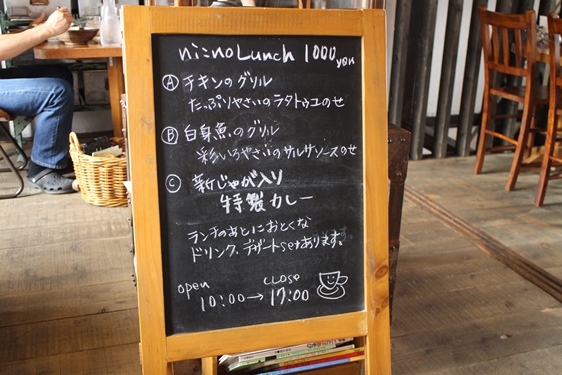 ninno Lunch 1000 yen
Ⓐ チキンのグリル
たっぷりやさいのラタトゥユのせ
Ⓑ 白身魚のグリル
彩いろやさいのサルサソースのせ
Ⓒ 新じゃが入り
特製カレー
ランチのあとにおとくな
ドリンク、デザートsetあります。
open
CLOSE
10:00→17:00